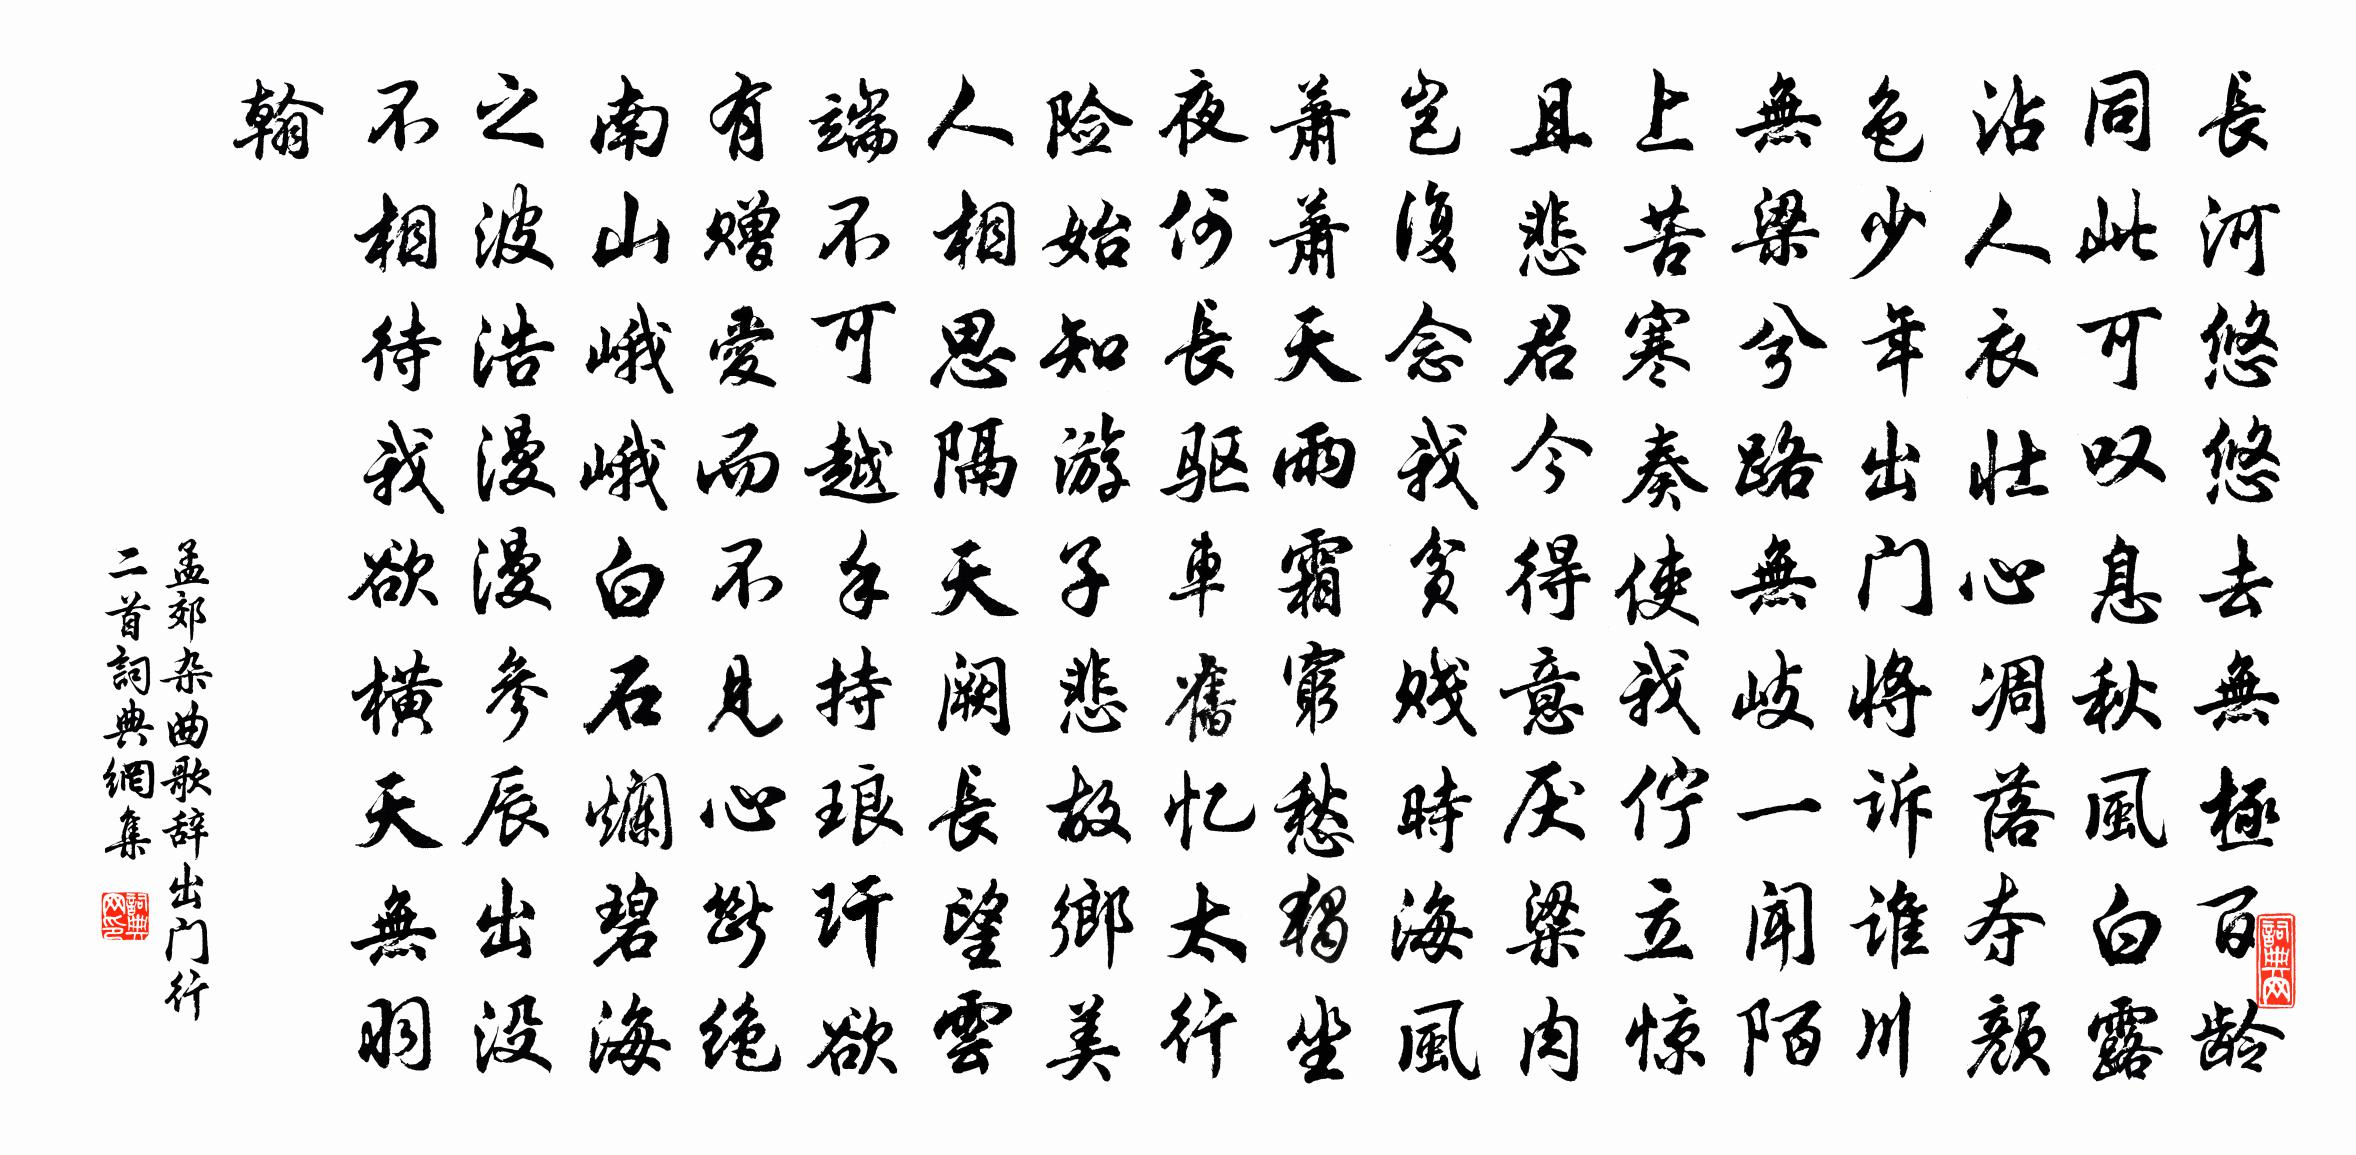 長河悠悠去無極百龄
同此可叹息秋風白露
沾人衣壮心凋落夺颜
色少年出门将诉谁川
無梁兮路無岐一闻陌
上苦寒奏使我佇立惊
且悲君今得意厌梁肉
岂復念我贫贱時海風
萧萧天雨霜窮愁獨坐
夜何長驱車舊忆太行
险始知游子悲故鄉美
人相思隔天阙長望雲
端不可越手持琅玕欲
有赠愛而不見心斷绝
南山峨峨白石爛碧海
之波浩漫漫参辰出没
不相待我欲横天無羽
翰
孟郊杂曲歌辞出门行
二首詞典網集
詞典网
詞典网印